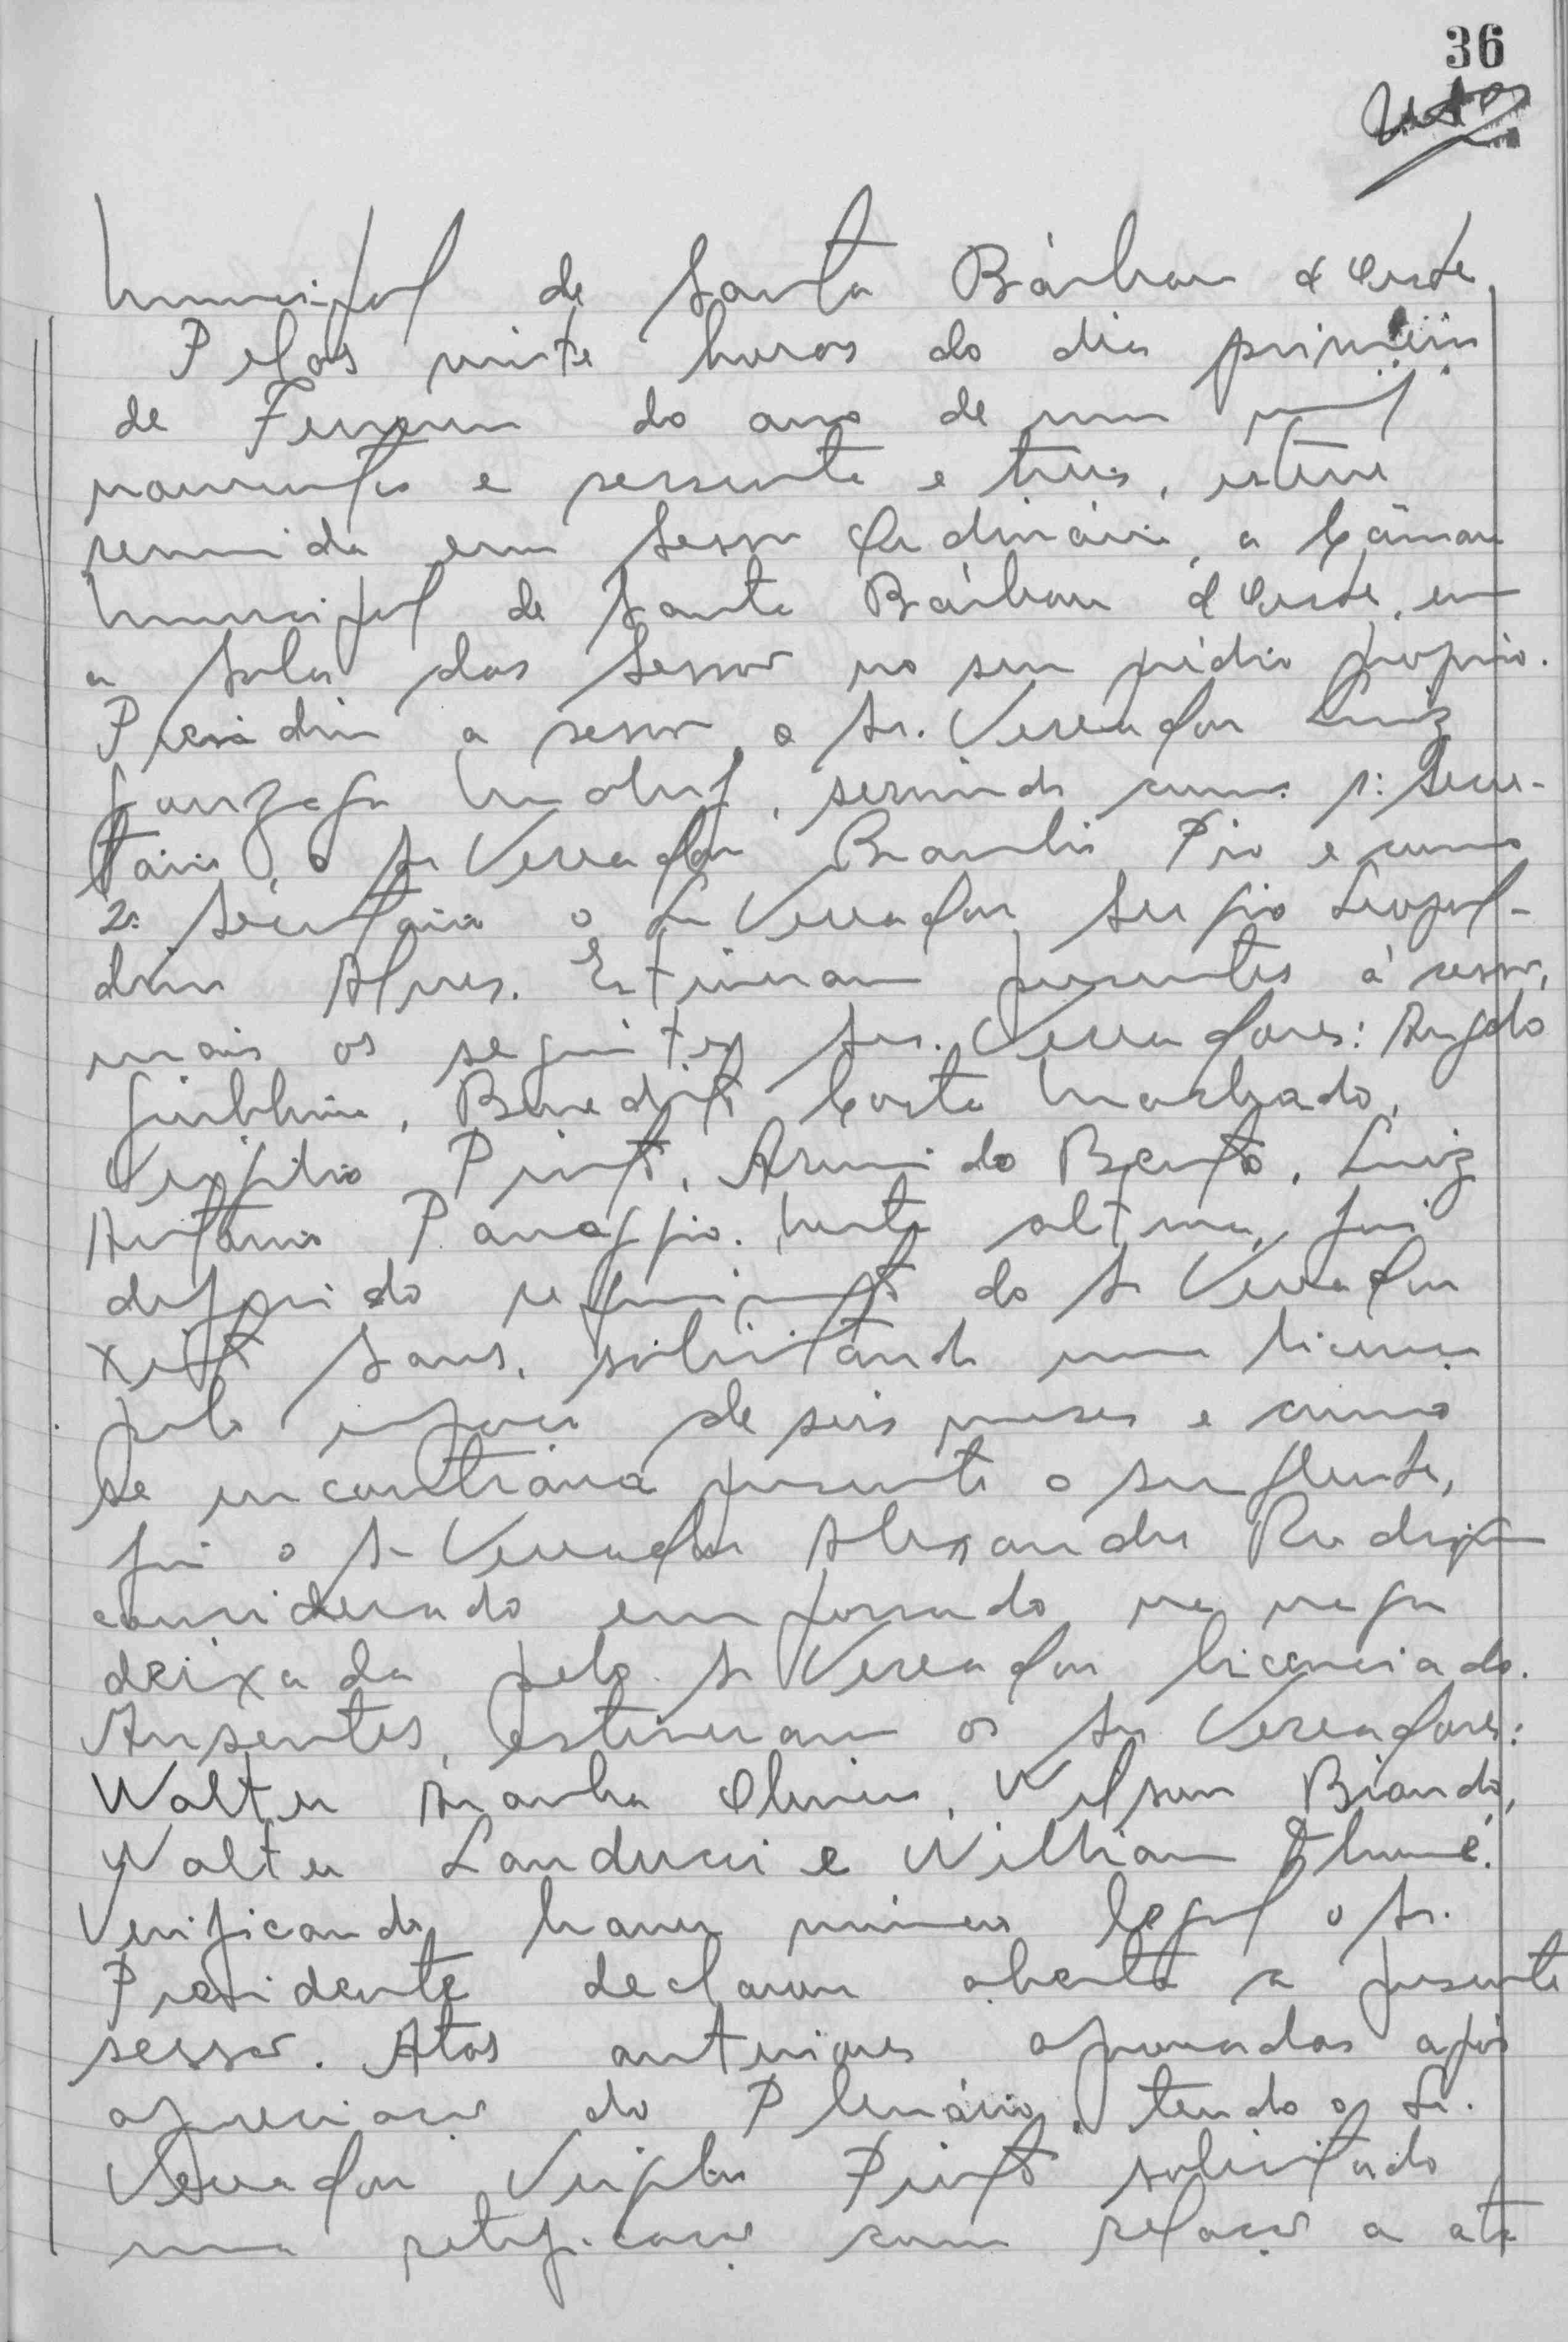 36
Municipal de Santa Bárbara d'Oeste.
Pelas vinte horas do dia primeiro
de Fevereiro do ano de um mil
novecentos e sessenta e três, esteve
reunida em Sessão Ordinária, a Câmara
Municipal de Santa Bárbara d'Oeste, em
a Sala das Sessões no seu prédio proprio.
Presidiu a sessão, o Sr. Vereador Luiz
Gonzaga, servindo como 1º Secre-
tário, o Sr Vereador Brasilio Pio e como
2º Secretário o Sr Vereador Sergio Leopol-
dino Alves. Estiveram presentes à sessão,
mais os seguintes Srs. Vereadores: Angelo
Giubbina, Benedito Costa Machado,
Virgilio Pinto, Armindo Bento, Luiz
Antonio Panaggio. Nesta altura, foi
deferido requerimento do Sr Vereador
Sans, solicitando uma licença
pelo espaço de seis meses e como
se encontrava presente o suplente,
foi o Sr Vereador Alexandre
considerado empossado na vaga
deixada pelo Sr Vereador licenciado.
Ausentes, estiveram os Srs Vereadores:
Walter Aranha Oliveira, Wilson Biando,
Walter Landucci e William
Verificando haver número legal o Sr.
Presidente declarou aberta a presente
sessão. Atas anteriores aprovadas após
apreciação do Plenário, tendo o Sr.
Vereador Virgilio Pinto solicitado
uma retificação com relação a ata